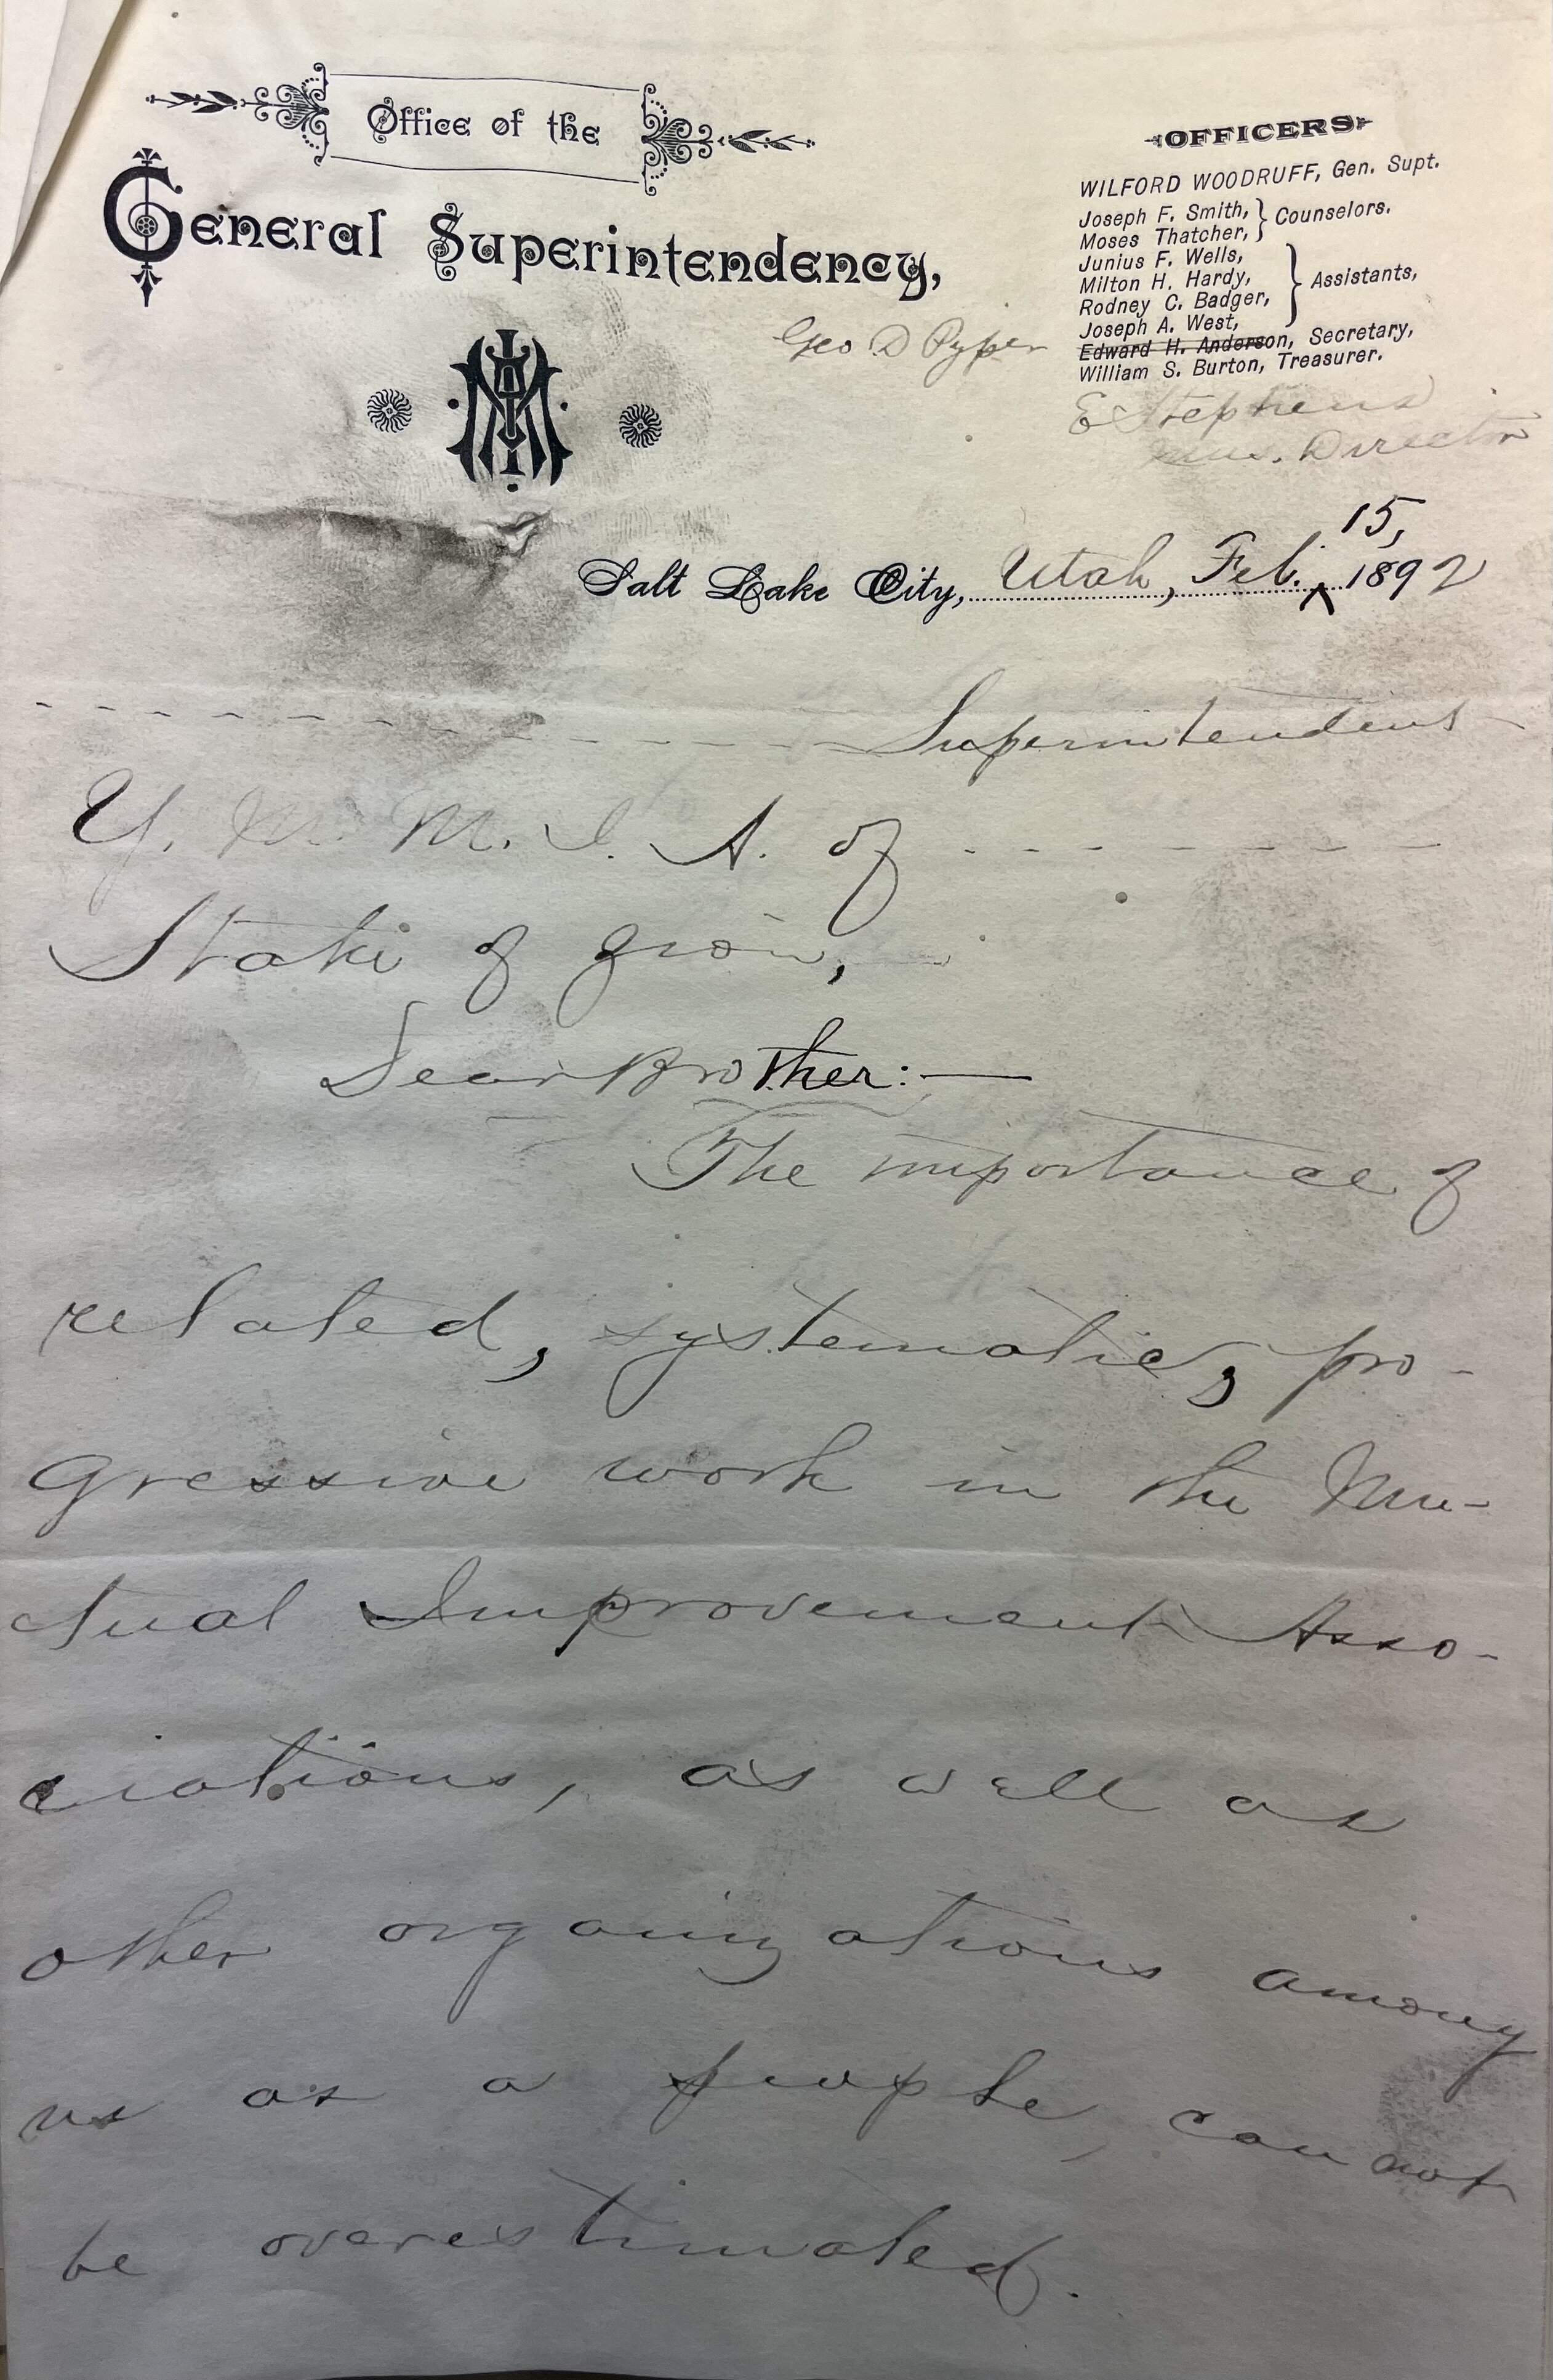 Office of the
General Superintendency,
OFFICERS
WILFORD WOODRUFF, Gen. Supt.
Joseph F. Smith, } Counselors.
Moses Thatcher,
Junius F. Wells,
Milton H. Hardy, } Assistants,
Rodney C. Badger,
Joseph A. West,
Geo D Pyper Edward H. Anderson, Secretary,
William S. Burton, Treasurer.
E Stephens
Mus. Director
Salt Lake City, Utah, Feb. 15, 1892
Superintendent
Y. M. M. I. A. of
Stake of Zion,
Dear Brother:—
The importance of
related, systematic, pro-
gressive work in the Mu-
tual Improvement Asso-
ciations, as well as
other organizations among
us as a people, can not
be overestimated.